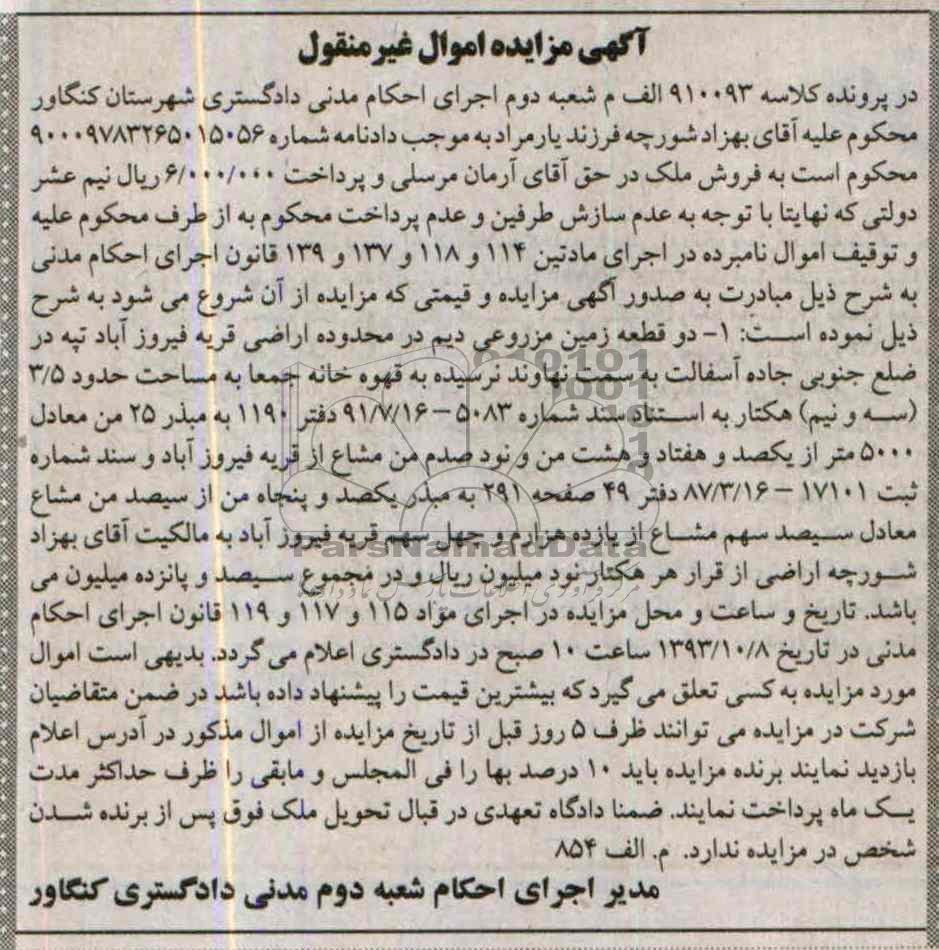 آگهی مزایده اموال غیر منقول
در پرونده کلاسه ۹۱۰۰۹۳ الف م شعبه دوم اجرای احکام مدنی دادگستری شهرستان کنگاور
محکوم علیه آقای بهزاد شورچه فرزند یارمراد به موجب دادنامه شماره ۹۰۰۰۹۷۸۳۲۶۵۰۱۵۰۵۶
محکوم است به فروش ملک در حق آقای آرمان مرسلی و پرداخت ۶/۰۰۰/۰۰۰ ریال نیم عشر
دولتی که نهایتا با توجه به عدم سازش طرفین و عدم پرداخت محکوم به از طرف محکوم علیه
و توقیف اموال نامبرده در اجرای مادتین ۱۱۴ و ۱۱۸ و ۱۳۷ و ۱۳۹ قانون اجرای احکام مدنی
به شرح ذیل مبادرت به صدور آگهی مزایده و قیمتی که مزایده از آن شروع می شود به شرح
ذیل نموده است: ۱- دو قطعه زمین مزروعی دیم در محدوده اراضی قریه فیروز آباد تپه در
ضلع جنوبی جاده آسفالت به سمت نهاوند نرسیده به قهوه خانه جمعا به مساحت حدود ۳/۵
(سه و نیم) هکتار به استناد سند شماره ۵۰۸۳ – ۹۱/۷/۱۶ دفتر ۱۱۹۰ به مبذر ۲۵ من معادل
۵۰۰۰ متر از یکصد و هفتاد و هشت من و نود صدم من مشاع از قریه فیروز آباد و سند شماره
ثبت ۱۷۱۰۱ – ۸۷/۳/۱۶ دفتر ۴۹ صفحه ۲۹۱ به مبذر یکصد و پنجاه من از سیصد من مشاع
معادل سیصد سهم مشاع از یازده هزارم و چهل سهم قریه فیروز آباد به مالکیت آقای بهزاد
شورچه اراضی از قرار هر هکتار نود میلیون ریال و در مجموع سیصد و پانزده میلیون می
باشد. تاریخ و ساعت و محل مزایده در اجرای مواد ۱۱۵ و ۱۱۷ و ۱۱۹ قانون اجرای احکام
مدنی در تاریخ ۱۳۹۳/۱۰/۸ ساعت ۱۰ صبح در دادگستری اعلام می گردد. بدیهی است اموال
مورد مزایده به کسی تعلق می گیرد که بیشترین قیمت را پیشنهاد داده باشد در ضمن متقاضیان
شرکت در مزایده می توانند ظرف ۵ روز قبل از تاریخ مزایده از اموال مذکور در آدرس اعلام
بازدید نمایند برنده مزایده باید ۱۰ درصد بها را فی المجلس و مابقی را ظرف حداکثر مدت
یک ماه پرداخت نمایند. ضمنا دادگاه تعهدی در قبال تحویل ملک فوق پس از برنده شدن
شخص در مزایده ندارد. م. الف ۸۵۴
مدیر اجرای احکام شعبه دوم مدنی دادگستری کنگاور
ParsNamadData